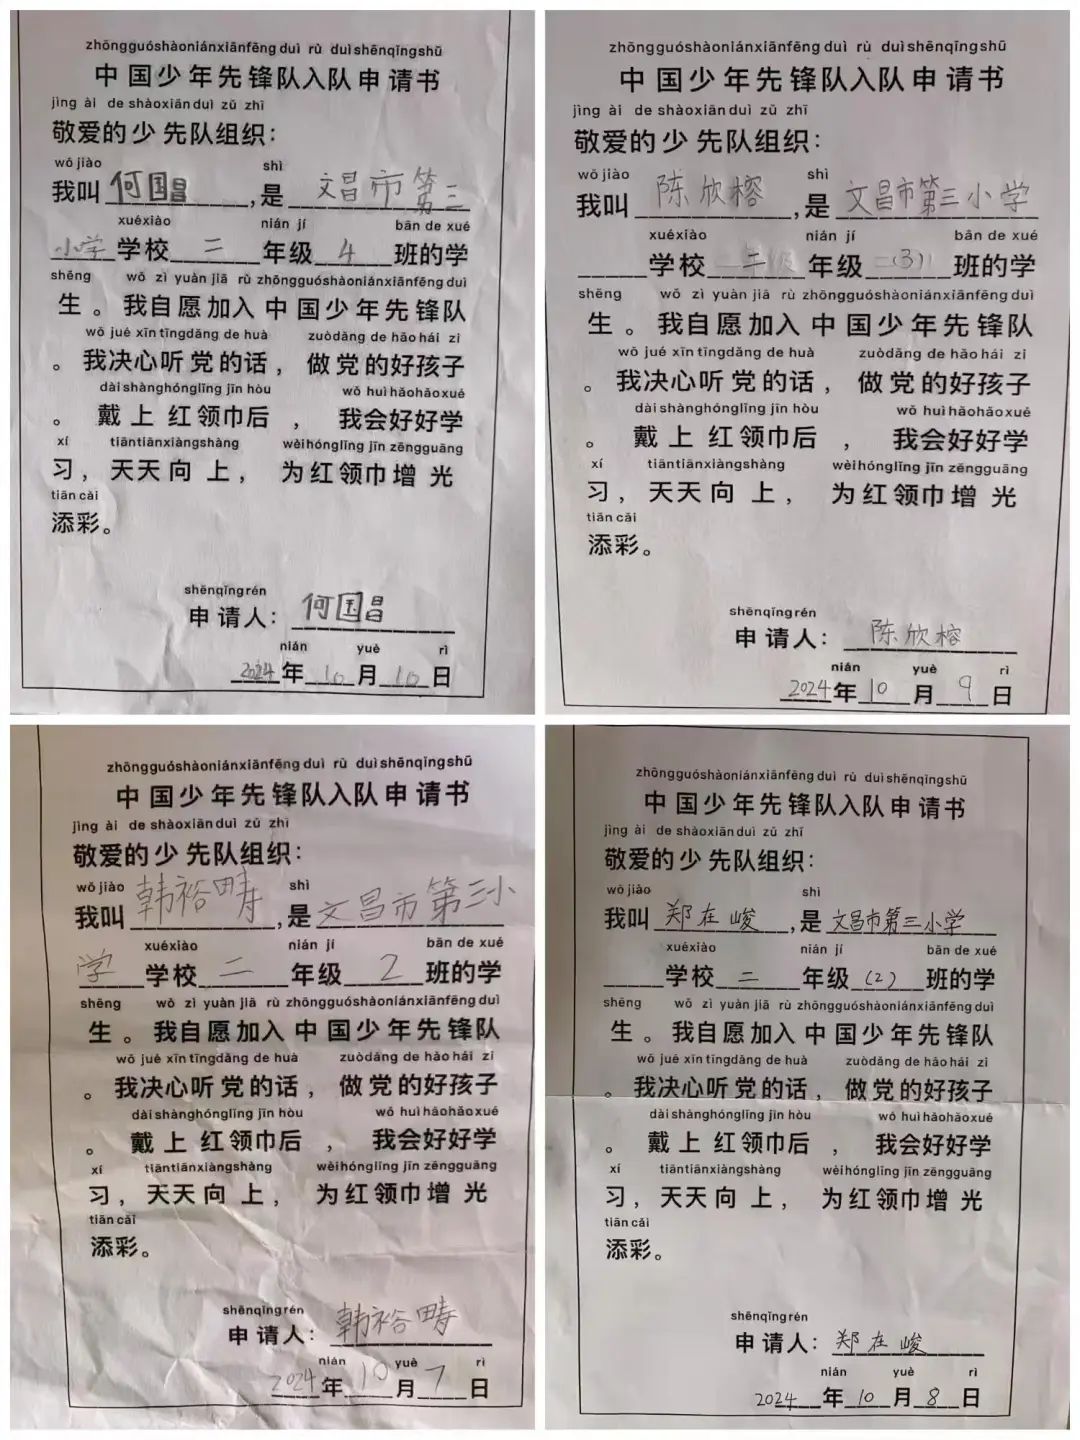 zhōngguóshàoniánxiānfēng duì rù duì shēnqǐngshū
中国少年先锋队入队申请书
jìng ài de shàoxiān duì zǔ zhī
敬爱的少先队组织：
wǒ jiào shì
我叫何国昌,是文昌市第三
xuéxiào nián jí bān de xué
小学学校二年级4班的学
shēng wǒ zì yuàn jiā rù zhōngguóshàoniánxiānfēng duì
生。我自愿加入中国少年先锋队
wǒ jué xīn tīngdǎng de huà zuòdǎng de hǎo hái zi
。我决心听党的话，做党的好孩子
dài shànghónglǐng jīn hòu wǒ huì hǎohǎo xué
。戴上红领巾后，我会好好学
xí tiāntiānxiàngshàng wèihónglǐng jīn zēngguāng
习，天天向上，为红领巾增光
tiān cǎi
添彩。
shēnqǐng rén
申请人：何国昌
nián yuè rì
2024年10月10日
zhōngguóshàoniánxiānfēng duì rù duì shēnqǐngshū
中国少年先锋队入队申请书
jìng ài de shàoxiān duì zǔ zhī
敬爱的少先队组织：
wǒ jiào shì
我叫陈欣榕,是文昌市第三小学
xuéxiào nián jí bān de xué
学校二年级(3)班的学
shēng wǒ zì yuàn jiā rù zhōngguóshàoniánxiānfēng duì
生。我自愿加入中国少年先锋队
wǒ jué xīn tīngdǎng de huà zuòdǎng de hǎo hái zi
。我决心听党的话，做党的好孩子
dài shànghónglǐng jīn hòu wǒ huì hǎohǎo xué
。戴上红领巾后，我会好好学
xí tiāntiānxiàngshàng wèihónglǐng jīn zēngguāng
习，天天向上，为红领巾增光
tiān cǎi
添彩。
shēnqǐng rén
申请人：陈欣榕
nián yuè rì
2024年10月9日
zhōngguóshàoniánxiānfēng duì rù duì shēnqǐngshū
中国少年先锋队入队申请书
jìng ài de shàoxiān duì zǔ zhī
敬爱的少先队组织：
wǒ jiào shì
我叫韩裕畴,是文昌市第三小
xuéxiào nián jí bān de xué
学学校二年级2班的学
shēng wǒ zì yuàn jiā rù zhōngguóshàoniánxiānfēng duì
生。我自愿加入中国少年先锋队
wǒ jué xīn tīngdǎng de huà zuòdǎng de hǎo hái zi
。我决心听党的话，做党的好孩子
dài shànghónglǐng jīn hòu wǒ huì hǎohǎo xué
。戴上红领巾后，我会好好学
xí tiāntiānxiàngshàng wèihónglǐng jīn zēngguāng
习，天天向上，为红领巾增光
tiān cǎi
添彩。
shēnqǐng rén
申请人：韩裕畴
nián yuè rì
2024年10月7日
zhōngguóshàoniánxiānfēng duì rù duì shēnqǐngshū
中国少年先锋队入队申请书
jìng ài de shàoxiān duì zǔ zhī
敬爱的少先队组织：
wǒ jiào shì
我叫郑在峻,是文昌市第三小学
xuéxiào nián jí bān de xué
学校二年级(2)班的学
shēng wǒ zì yuàn jiā rù zhōngguóshàoniánxiānfēng duì
生。我自愿加入中国少年先锋队
wǒ jué xīn tīngdǎng de huà zuòdǎng de hǎo hái zi
。我决心听党的话，做党的好孩子
dài shànghónglǐng jīn hòu wǒ huì hǎohǎo xué
。戴上红领巾后，我会好好学
xí tiāntiānxiàngshàng wèihónglǐng jīn zēngguāng
习，天天向上，为红领巾增光
tiān cǎi
添彩。
shēnqǐng rén
申请人：郑在峻
nián yuè rì
2024年10月8日